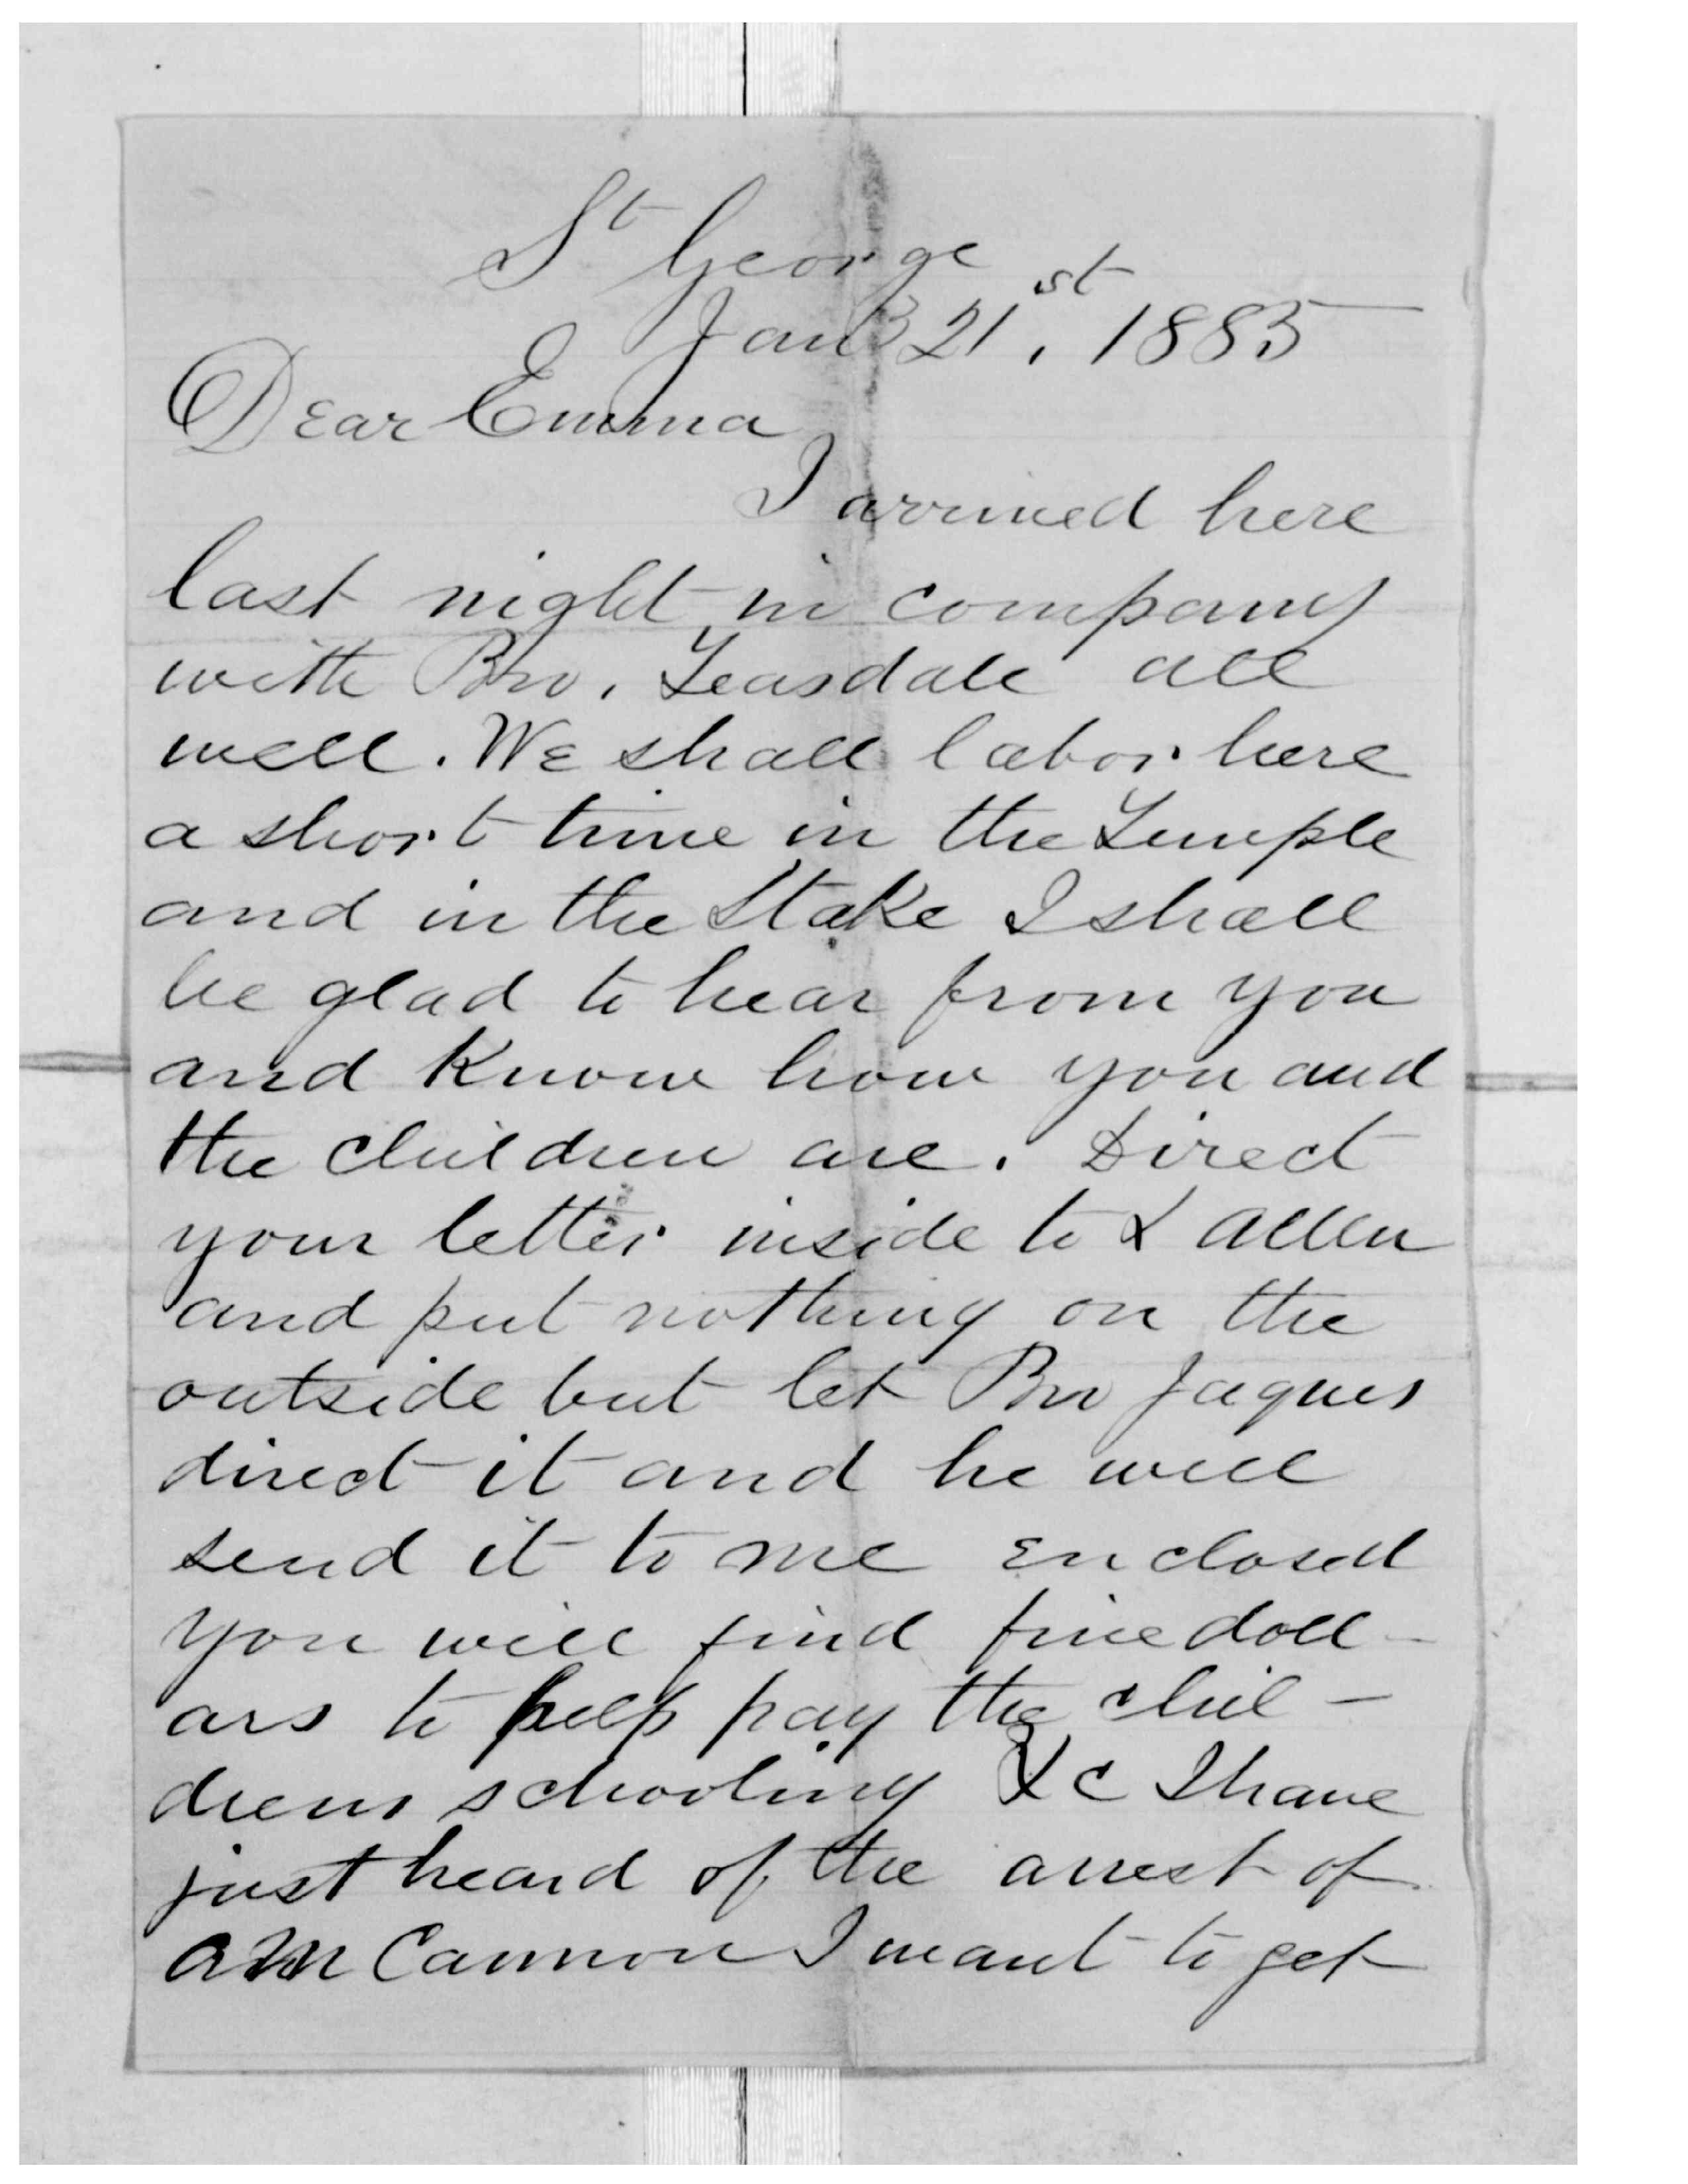 St George
Jan 21st, 1885
Dear Emma
I arrived here
last night in company
with Bro. Teasdale all
well. We shall labor here
a short time in the Temple
and in the Stake I shall
be glad to hear from you
and know how you and
the children are. Direct
your letter inside to L Allen
and put nothing on the
outside but let Bro Jaques
direct it and he will
send it to me enclosed
you will find five doll-
ars to help pay the chil-
drens schooling &c I have
just heard of the arrest of
A M Cannon I want to get